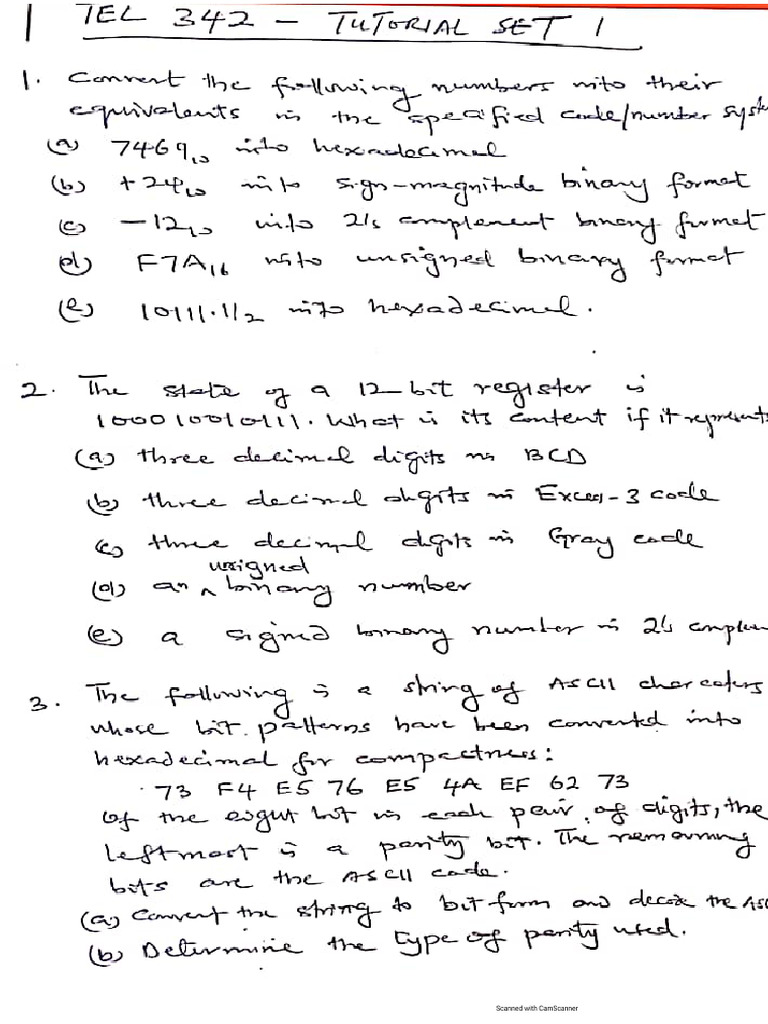 TEL 342 - TUTORIAL SET 1
1. Convert the following numbers into their
equivalents in the specified code/number syste
(a) 7469₁₀ into hexadecimal
(b) +24₁₀ into sign-magnitude binary format
(c) -12₁₀ into 2's complement binary format
(d) F7A₁₆ into unsigned binary format
(e) 10111.11₂ into hexadecimal.
2. The state of a 12-bit register is
100010010111. What is its content if it represents
(a) three decimal digits in BCD
(b) three decimal digits in Excess-3 code
(c) three decimal digits in Gray code
(d) an unsigned binary number
(e) a signed binary number in 2's complem
3. The following is a string of ASCII characters
whose bit patterns have been converted into
hexadecimal for compactness:
73 F4 E5 76 E5 4A EF 62 73
Of the eight bit in each pair of digits, the
leftmost is a parity bit. The remaining
bits are the ASCII code.
(a) Convert the string to bit form and decode the ASC
(b) Determine the type of parity used.
Scanned with CamScanner